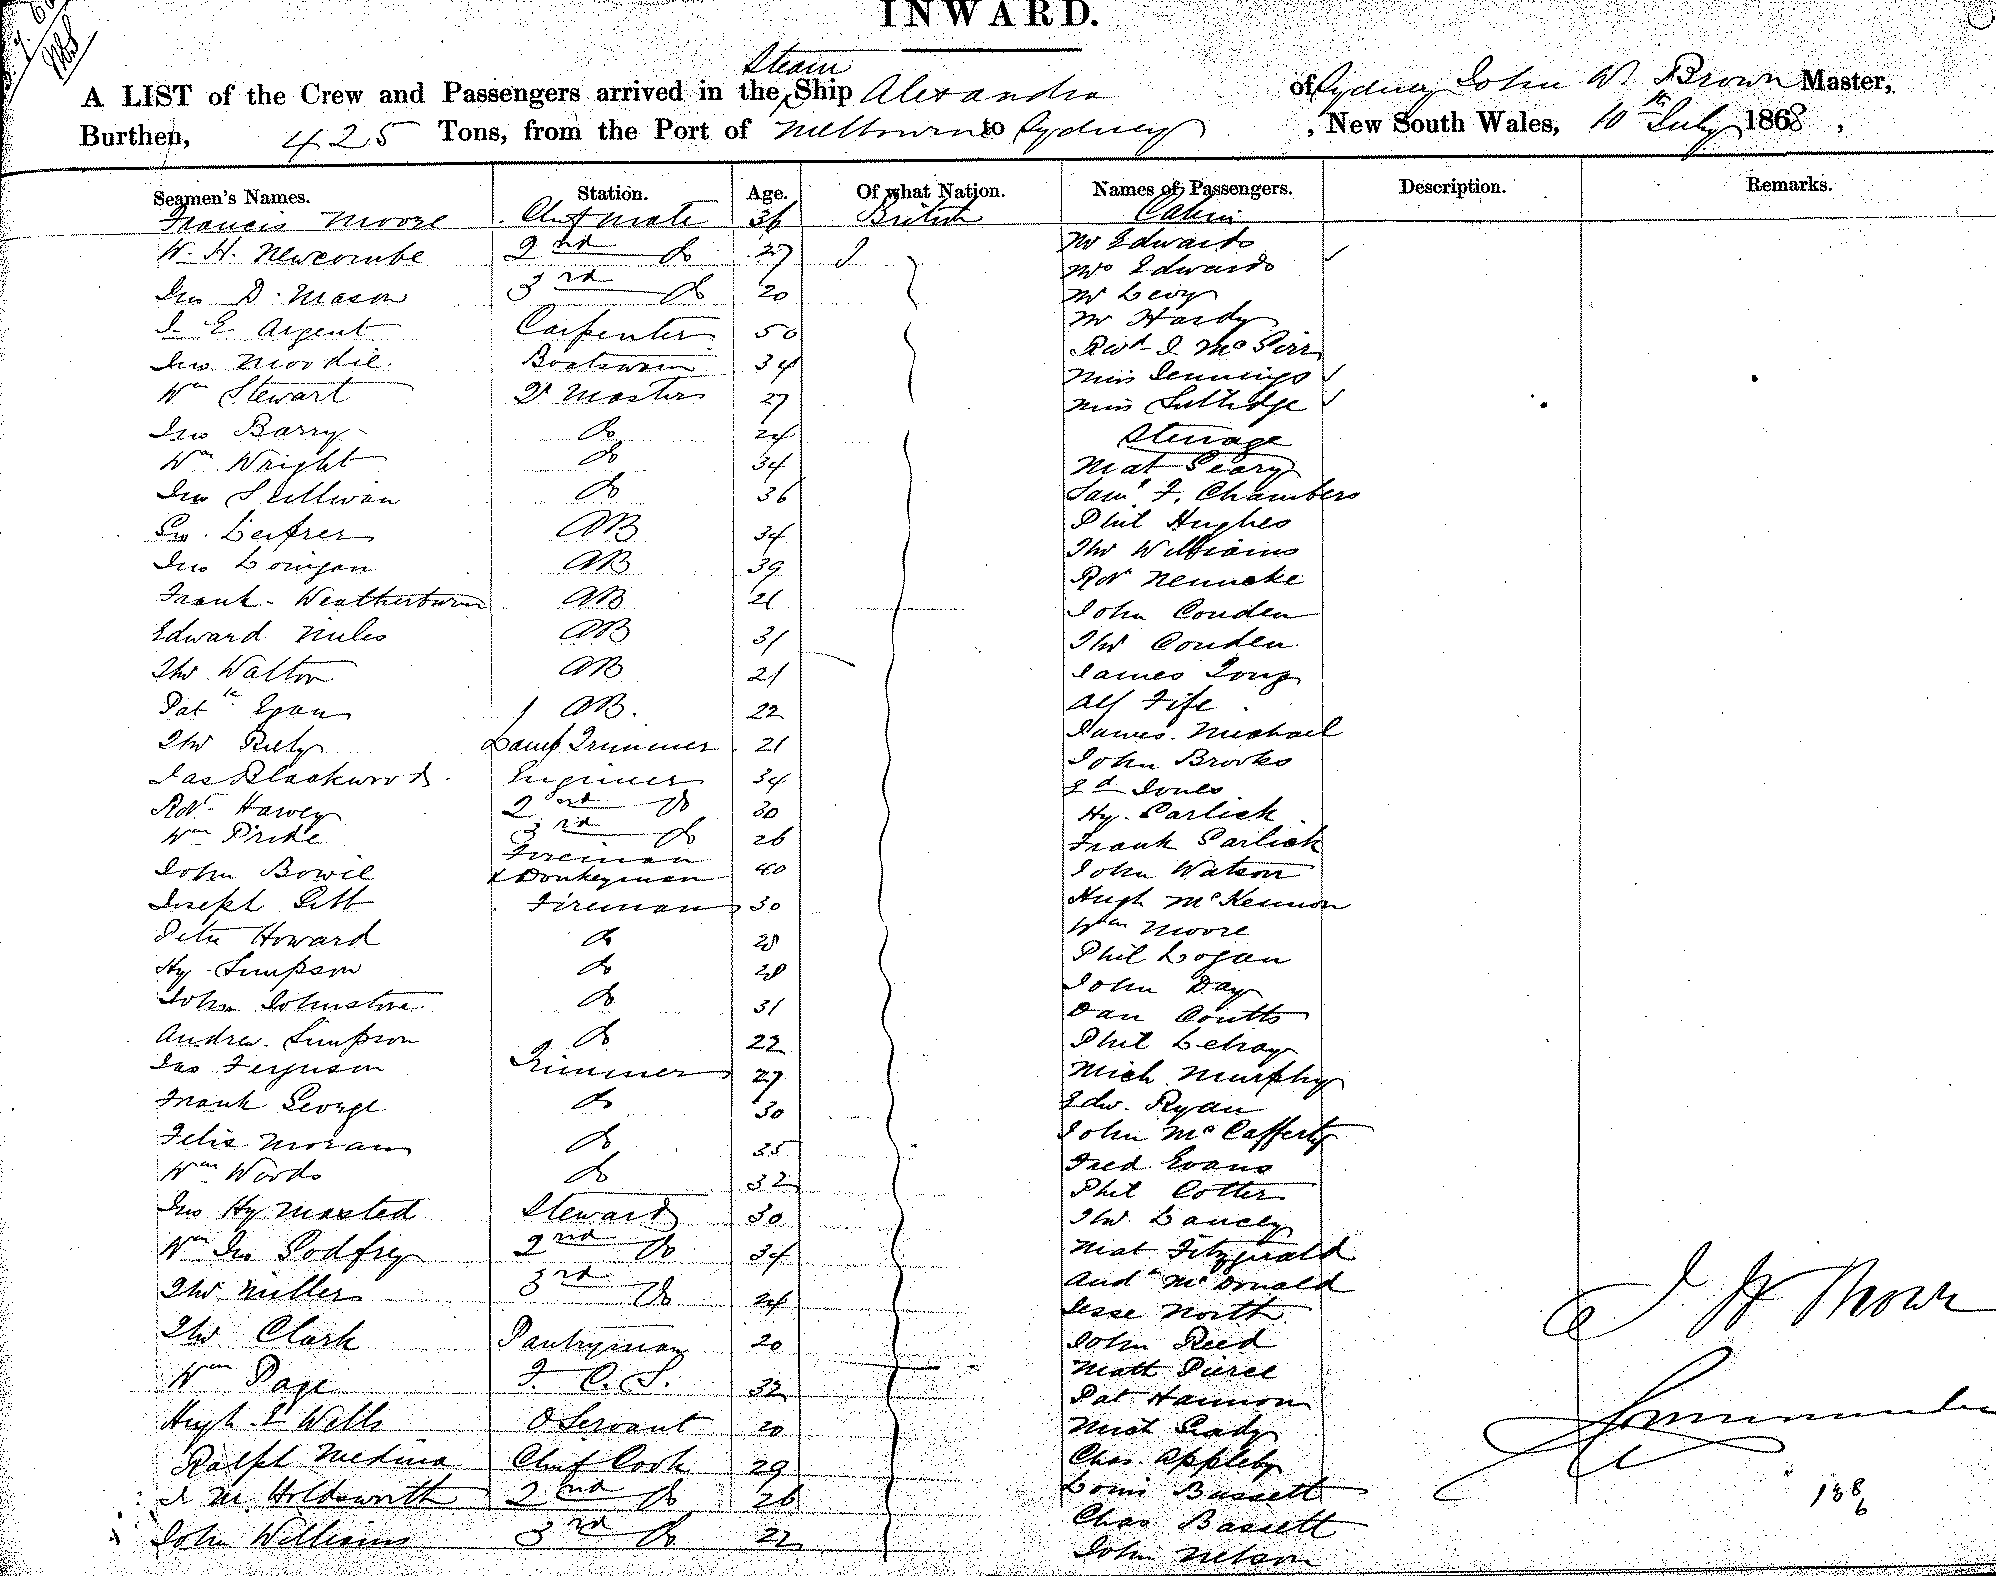 INWARD.
Steam
A LIST of the Crew and Passengers arrived in the Ship Alexandra of Sydney John W. Brown Master,
Burthen, 425 Tons, from the Port of Melbourne to Sydney, New South Wales, 10th July 1868,
Seamen's Names. Station. Age. Of what Nation. Names of Passengers. Description. Remarks.
Francis Moore Chief Mate 36 British Cabin
W. H. Newcombe 2nd Do 27 Mr Edwards
Mrs Edwards
Jno D. Mason 3rd Do 20 Mr Levy
J. E. Argent Carpenter 50 Mr Hardy
Jno Moodie Boatswain 34 Revd J. Mc
Wm Stewart Qr Master 27 Miss Jennings
Miss
Jno Barry Do 24 Steerage
Wm Wright Do 34 Mat Geary
Jno Sullivan Do 36 Saml F. Chambers
Geo. AB 34 Phil Hughes
Jno AB 39 Thos Williams
Frank Weatherburn AB 21 Robt
Edward Miles AB 31 John Couden
Thos Walton AB 21 Thos Couden
Patk Egan AB. 22 James Long
Thos Riely Lamp Trimmer 21 Alf Fife
Jas Blackwood Engineer 34 James Michael
Robt Harvey 2nd Do 30 John Brooks
Wm Pride 3rd Do 26 Ed Jones
John Bowie Fireman & Donkeyman 40 Hy. Garlick
Joseph Fireman 30 Frank Garlick
Peter Howard Do 28 John Watson
Hy Simpson Do 28 Hugh McKennon
John Johnstone Do 31 Wm Moore
Andrew Simpson Do 22 Phil Logan
Jas Ferguson Trimmer 27 John Day
Frank George Do 30 Dan Coutts
Felix Moran Do 35 Phil
Wm Woods Do 32 Mich Murphy
Jno Hy Maxted Steward 30 Edw. Ryan
Wm Jno Godfrey 2nd Do 34 John McCafferty
Thos Miller 3rd Do 24 Fred Evans
Thos Clark Pantryman 20 Phil Cotter
Wm Page F. C. S. 32 Thos Lancey
Hugh Wells O Servant 20 Mat Fitzgerald
Ralph Medina Chief Cook 29 Andw McDonald
J. M. Holdsworth 2nd Do 26 Jesse North
John Williams 3rd Do 22 John Reed
Matt Pierce
Pat Hannon
Mich Grady
Chas Appleby
Louis Bassett
Chas Bassett
John Nelson
J W Brown
Commander